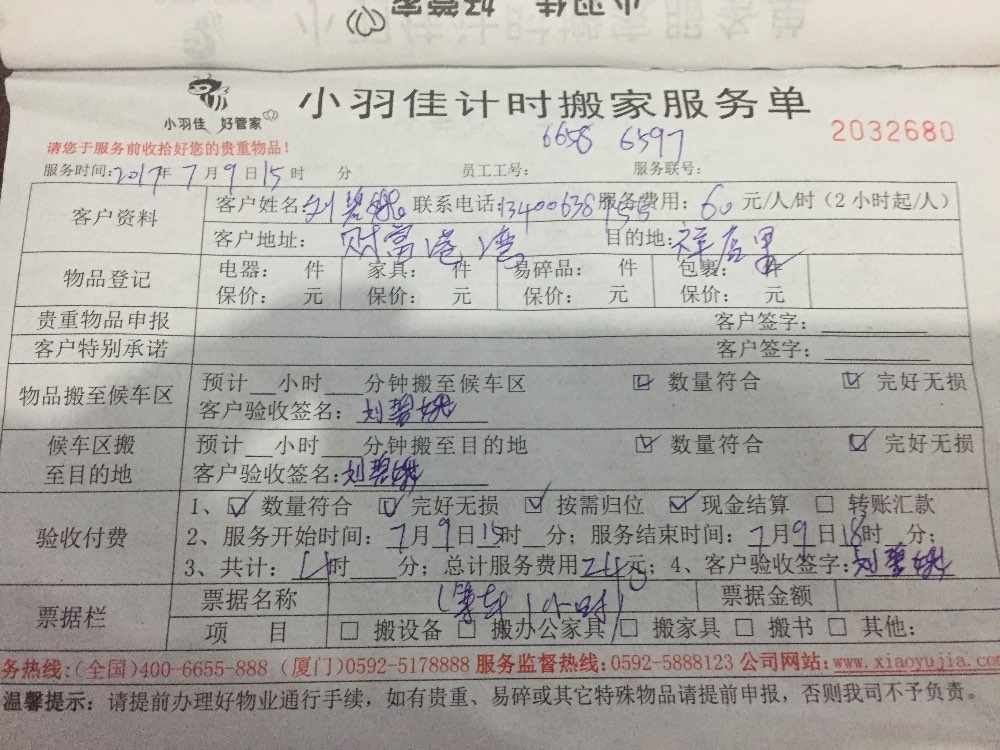 小羽佳 好管家
小羽佳计时搬家服务单
小羽佳 好管家
小羽佳计时搬家服务单
6658 6597
2032680
请您于服务前收拾好您的贵重物品!
服务时间:2017年7月9日15时 分 员工工号: 服务联号:
客户资料
客户姓名:刘碧 联系电话:13400638155 服务费用:60元/人/时(2小时起/人)
客户地址: 财富港湾 目的地:祥店里
物品登记
电器: 件 家具: 件 易碎品: 件 包裹: 件
保价: 元 保价: 元 保价: 元 保价: 元
贵重物品申报 客户签字:
客户特别承诺 客户签字:
物品搬至候车区
预计__小时___分钟搬至候车区 ☑ 数量符合 ☑ 完好无损
客户验收签名:刘碧
候车区搬至目的地
预计__小时___分钟搬至目的地 ☑ 数量符合 ☑ 完好无损
客户验收签名:刘碧
验收付费
1、☑ 数量符合 ☑ 完好无损 ☑ 按需归位 ☑ 现金结算 □ 转账汇款
2、服务开始时间:7月9日15时__分;服务结束时间:7月9日18时__分;
3、共计:4时___分;总计服务费用240元;4、客户验收签字:刘碧
票据栏
票据名称 票据金额
(等车1小时)
项 目 □ 搬设备 □ 搬办公家具 □ 搬家具 □ 搬书 □ 其他:
务热线:(全国)400-6655-888 (厦门)0592-5178888 服务监督热线:0592-5888123 公司网站:www.xiaoyujia.co
温馨提示:请提前办理好物业通行手续,如有贵重、易碎或其它特殊物品请提前申报,否则我司不予负责。